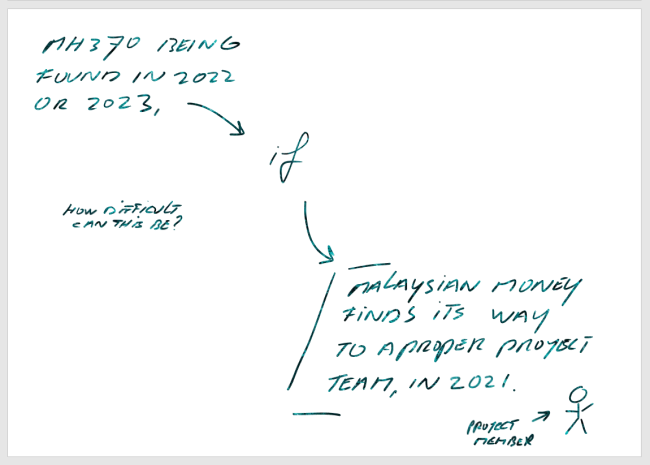 MH370 BEING
FOUND IN 2022
OR 2023,
if
HOW DIFFICULT
CAN THIS BE?
MALAYSIAN MONEY
FINDS ITS WAY
TO A PROPER PROJECT
TEAM, IN 2021.
PROJECT
MEMBER